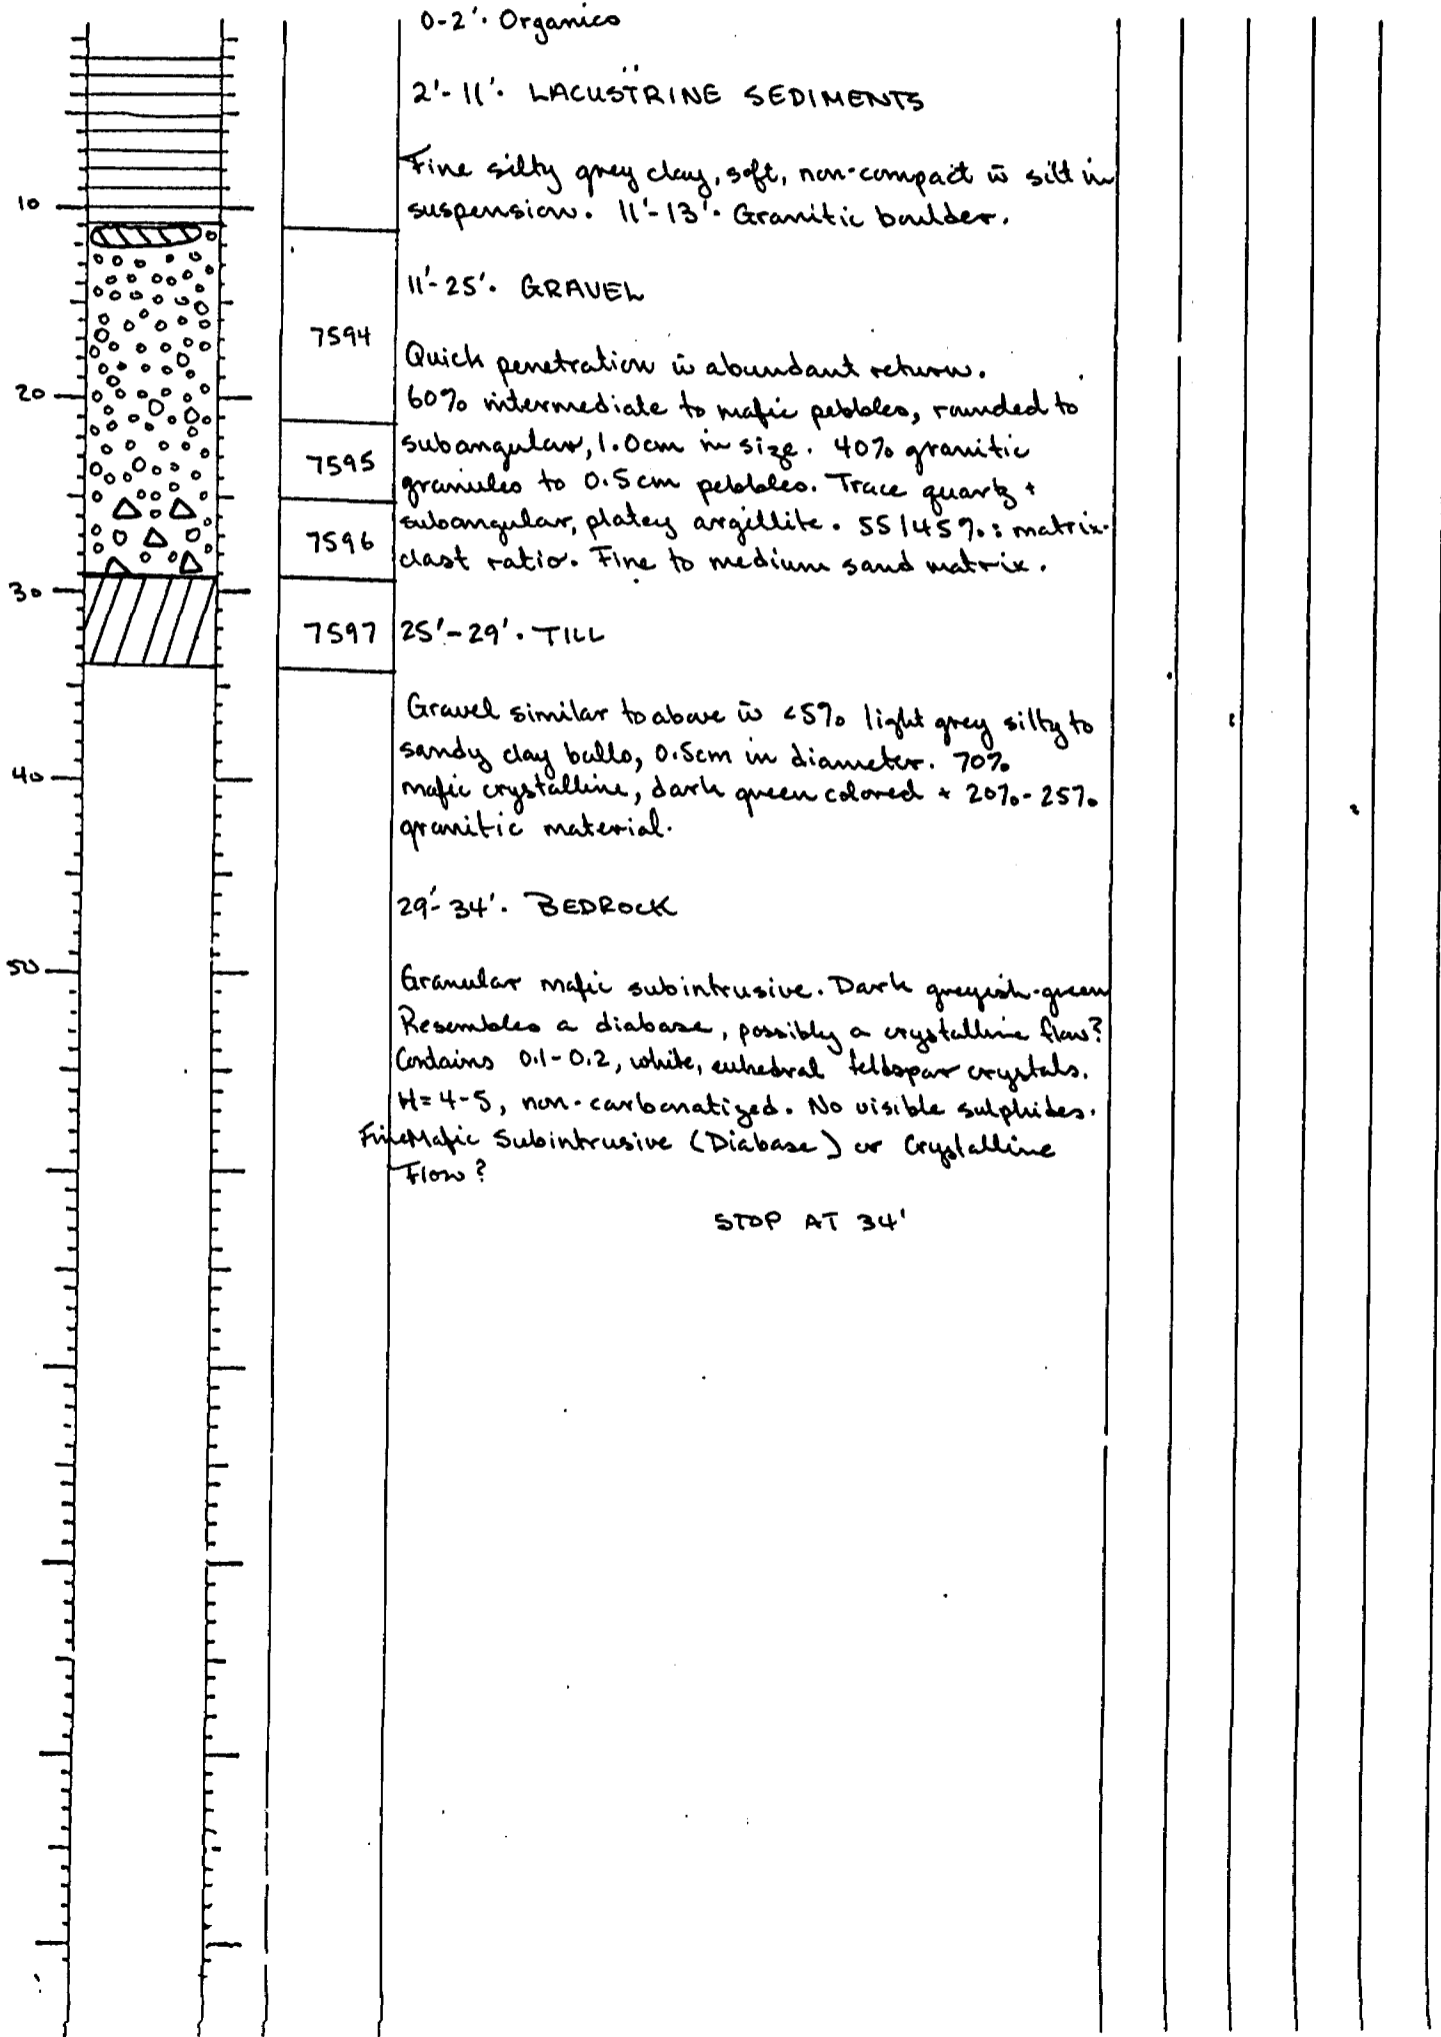 0-2'. Organics
2'-11'. LACUSTRINE SEDIMENTS
Fine silty grey clay, soft, non-compact w̄ silt in
suspension. 11'-13'. Granitic boulder.
10
11'-25'. GRAVEL
7594
Quick penetration w̄ abundant return.
20
60% intermediate to mafic pebbles, rounded to
subangular, 1.0cm in size. 40% granitic
7595
granules to 0.5cm pebbles. Trace quartz +
subangular, platey argillite. 55/45%: matrix-
7596
clast ratio. Fine to medium sand matrix.
30
7597
25'-29'. TILL
Gravel similar to above w̄ <5% light grey silty to
sandy clay balls, 0.5cm in diameter. 70%
40
mafic crystalline, dark green colored + 20%-25%
granitic material.
29'-34'. BEDROCK
50
Granular mafic subintrusive. Dark greyish-green
Resembles a diabase, possibly a crystalline flow?
Contains 0.1-0.2, white, euhedral feldspar crystals.
H=4-5, non-carbonatized. No visible sulphides.
Fine Mafic Subintrusive (Diabase) or Crystalline
Flow?
STOP AT 34'